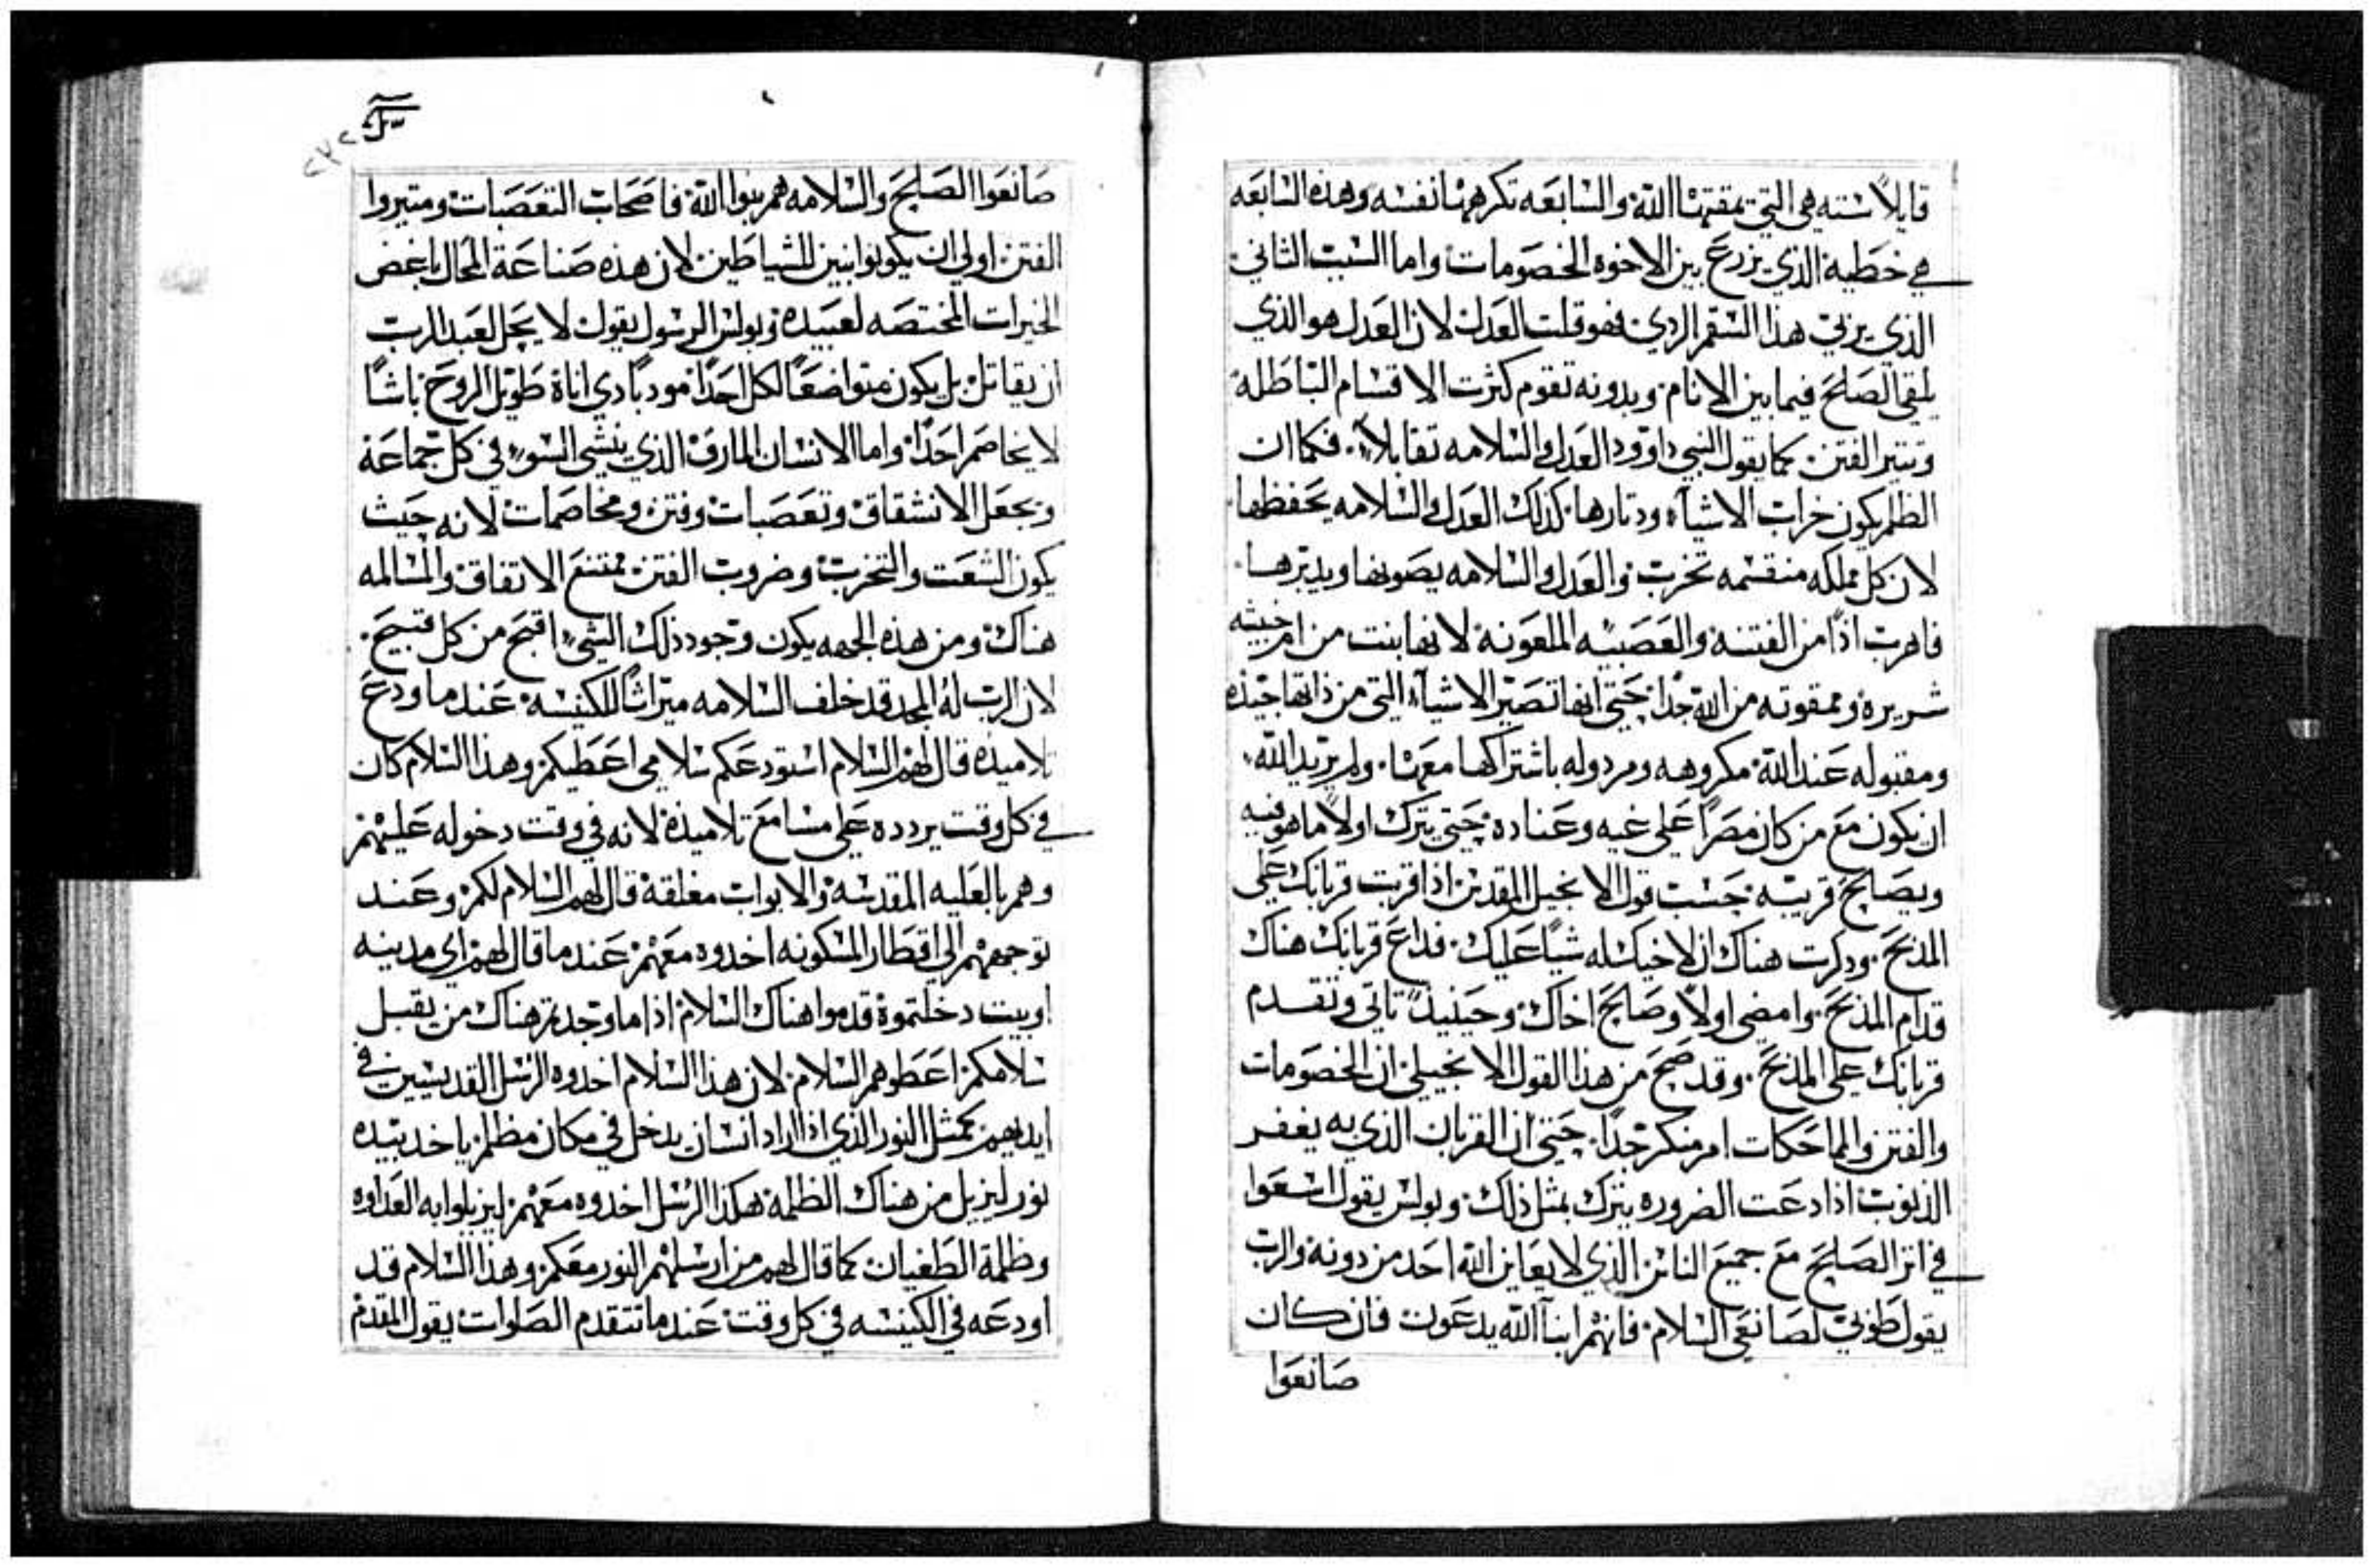 قايلاً سته هي التي يمقتها الله والسابعه تكرهها نفسه وهذه السابعه
هي خطية الذي يزرع بين الاخوه الخصومات واما السبب الثاني
الذي يربي هذا السقم الردي فهو قلت العدل لان العدل هو الذي
يلقي الصلح فيما بين الانام وبدونه تقوم كثرت الاقسام الباطله
وتتير الفتن كما يقول النبي داوود العدل والسلامه تقابلا فكما ان
الظلم يكون خراب الاشياء ودتارها كذلك العدل والسلامه يحفظها
لان كل مملكه منقسمه تخرب والعدل والسلامه يصونها ويدبرها
فاهرب اذاً من الفتنة والعصبيه الملعونة لانها بنت من ام خبيثه
شريره وممقوته من الله جداً حتي انها تصير الاشياء التي من ذاتها جيده
ومقبوله عند الله مكروهه ومردوله باشتراكها معها ولم يريد الله
ان يكون مع من كان مصراً علي غيه وعناده حتي يترك اولاً ما هو فيه
ويصالح قريبه حسب قول الانجيل المقدس اذا قربت قربانك علي
المذبح ودكرت هناك ان لاخيك له شياً عليك فداع قربانك هناك
قدام المذبح وامضي اولاً وصالح اخاك وحينيذ تاتي وتقدم
قربانك علي المذبح وقد صح من هذا القول الانجيلي ان الخصومات
والفتن والماحكات امر منكر جداً حتي ان القربان الذي به يغفر
الذنوب اذا دعت الضروره يترك بمثل ذلك وبولس يقول اسعوا
في اتر الصلح مع جميع الناس الذي لا يعاين الله احد من دونه والرب
يقول طوبي لصانعي السلام فانهم ابناء الله يدعون فان كان
صانعوا
صانعوا الصلح والسلامه هم بنوا الله فاصحاب التعصبات ومتيروا
الفتن اولي ان يكونوا بنين للشياطين لان هذه صناعة المحال باغض
الخيرات المختصه لعبيده وبولس الرسول يقول لا يحل لعبد الرب
ان يقاتل بل يكون متواضعاً لكل احداً مودباً دي اناة طويل الروح باشاً
لا يخاصم احداً واما الانسان المارق الذي ينشي السوء في كل جماعة
ويجعل الانشقاق وتعصبات وفتن ومخاصمات لانه حيث
يكون الشعت والتحزب وضروب الفتن يمتنع الاتفاق والمسالمه
هناك ومن هذه الجهه يكون وجود ذلك الشي اقبح من كل قبيح
لان الرب له المجد قد خلف السلامه ميراثاً للكنيسة عند ما ودع
تلاميده قال لهم السلام استودعكم سلامي اعطيكم وهذا السلام كان
في كل وقت يردده علي مسامع تلاميذه لانه في وقت دخوله عليهم
وهم بالعليه المقدسه والابواب مغلقة قال لهم السلام لكم وعند
توجههم الي اقطار المسكونه اخدوه معهم عند ما قال لهم اي مدينه
او بيت دخلتموة قدموا هناك السلام اذا ما وجدتم هناك من يقبل
سلامكم اعطوهم السلام لان هذا السلام اخدوه الرسل القديسين في
ايديهم كمثل النور الذي اذا اراد انسان يدخل في مكان مظلم ياخد بيده
نور ليزيل من هناك الظلمة هكذا الرسل اخدوه معهم ليزيلوا به العداوه
وظلمة الطغيان كما قال لهم من ارسلهم النور معكم وهذا السلام قد
اودعه في الكنيسه في كل وقت عند ما تتقدم الصلوات يقول المقدم